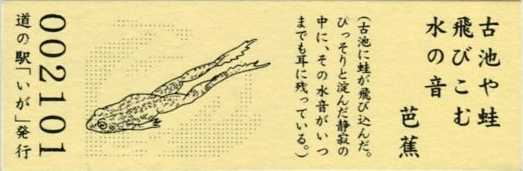 古池や蛙
飛びこむ
水の音
芭蕉
(古池に蛙が飛び込んだ。
ひっそりと淀んだ静寂の
中に、その水音がいつ
までも耳に残っている。)
002101
道の駅「いが」発行